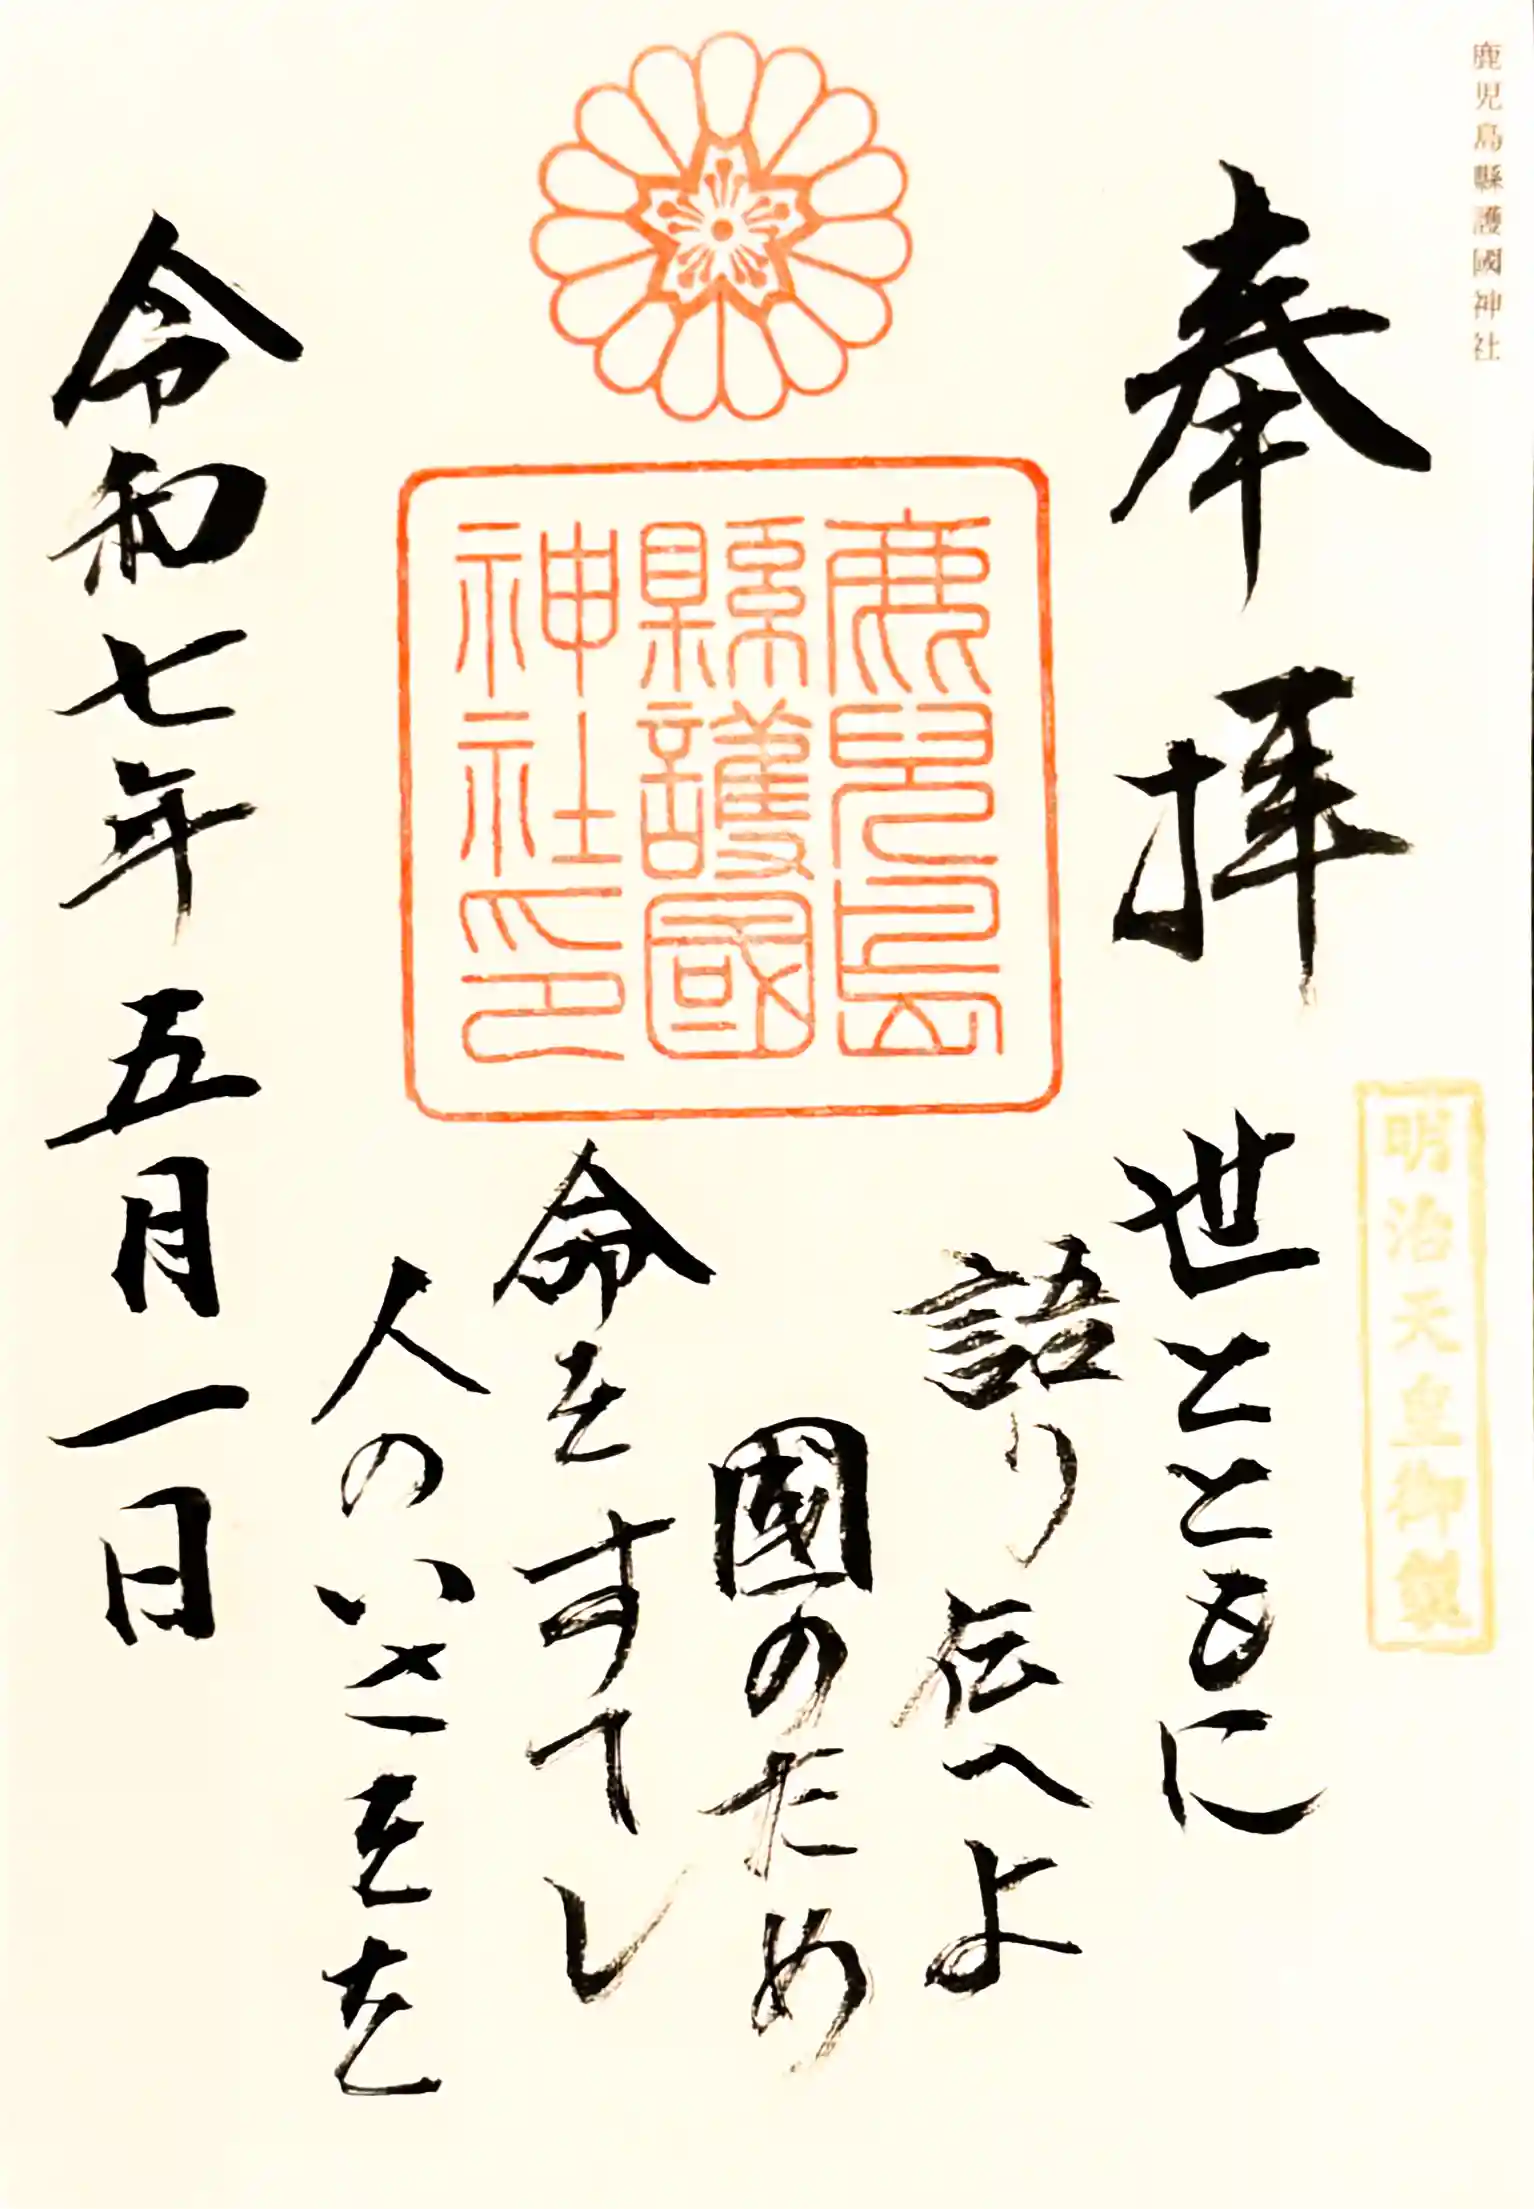 鹿児島縣護國神社
奉拝
明治天皇御製
世とともに
語り伝へよ
國のため
命をすてし
人のいさをを
鹿兒島
縣護國
神社印
令和七年五月一日